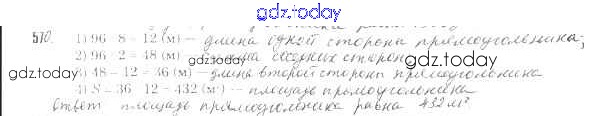 gdz.today
510. 1) 96 : 8 = 12 (м) — длина одной стороны прямоугольника;
2) 96 : 2 = 48 (м) — сторон
gdz.today gdz.today
3) 48 - 12 = 36 (м) — длина второй стороны прямоугольника
4) S = 36 · 12 = 432 (м²) — площадь прямоугольника
Ответ площадь прямоугольника равна 432 м²
gdz.today